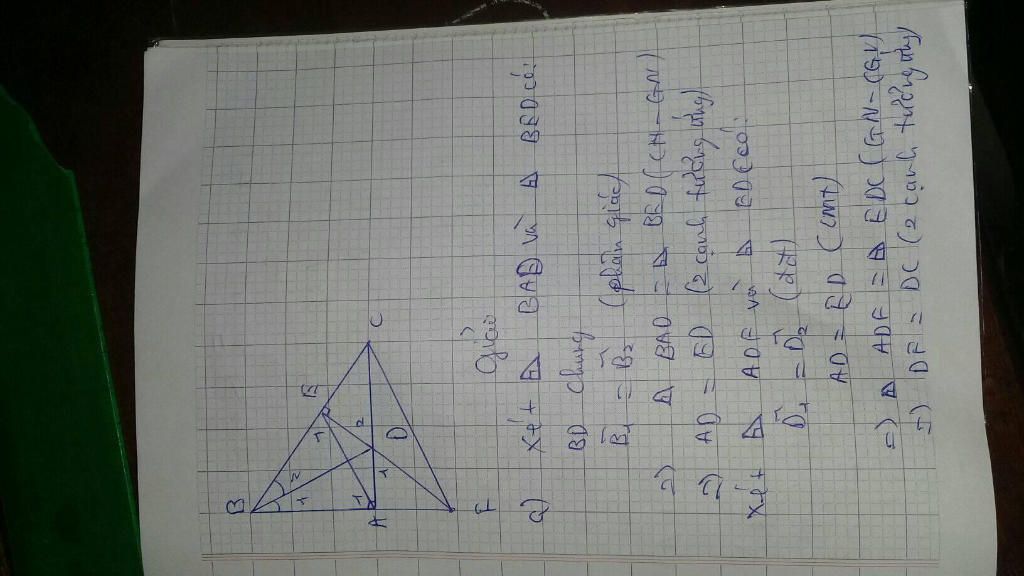 B
1 2
1
E
A
1
1
2
D
C
F
Giải
a) Xét Δ BAD và Δ BED có:
BD chung
B̂₁ = B̂₂ (phân giác)
=) Δ BAD = Δ BED (CH - GN)
=) AD = ED (2 cạnh tương ứng)
Xét Δ ADF và Δ EDC có:
D̂₁ = D̂₂ (đđ)
AD = ED (cmt)
=) Δ ADF = Δ EDC (GN - CGV)
=) DF = DC (2 cạnh tương ứng)